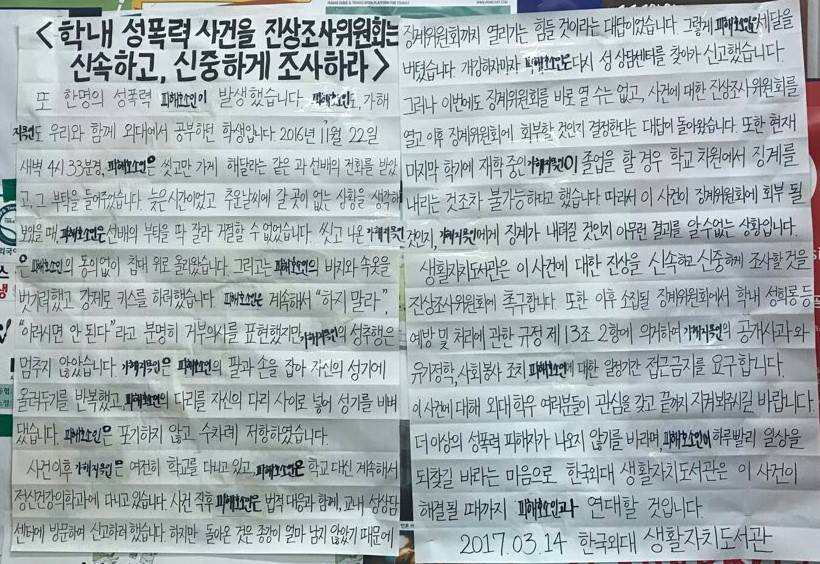 <학내 성폭력 사건을 진상조사위원회는
신속하고, 신중하게 조사하라>
또 한명의 성폭력 피해호소인이 발생했습니다. 피해호소인도, 가해
지목인도 우리와 함께 외대에서 공부하던 학생입니다. 2016년 11월 22일
새벽 4시 33분경, 피해호소인은 씻고만 가게 해달라는 같은 과 선배의 전화를 받았
고, 그 부탁을 들어주었습니다. 늦은시간이었고 추운날씨에 갈 곳이 없는 상황을 생각해
보았을 때, 피해호소인은 선배의 부탁을 딱 잘라 거절할 수 없었습니다. 씻고 나온 가해지목인
은 피해호소인의 동의 없이 침대 위로 올라왔습니다. 그리고는 피해호소인의 바지와 속옷을
벗기려했고 강제로 키스를 하려했습니다. 피해호소인은 계속해서 "하지 말라",
"이러시면 안 된다"라고 분명히 거부의사를 표현했지만 가해지목인의 성추행은
멈추지 않았습니다. 가해지목인은 피해호소인의 팔과 손을 잡아 자신의 성기에
올려두기를 반복했고, 피해호소인의 다리를 자신의 다리 사이로 넣어 성기를 비벼
댔습니다. 피해호소인은 포기하지 않고 수차례 저항하였습니다.
사건이후 가해지목인은 여전히 학교를 다니고 있고, 피해호소인은 학교 대신 계속해서
정신건강의학과에 다니고 있습니다. 사건 직후 피해호소인은 법적 대응과 함께, 교내 성상담
센터에 방문하여 신고하려 했습니다. 하지만 돌아온 것은 종강이 얼마 남지 않았기 때문에
징계위원회까지 열리기는 힘들 것이라는 대답이었습니다. 그렇게 피해호소인은 세달을
버텼습니다. 개강하자마자 피해호소인은 다시 성 상담센터를 찾아가 신고했습니다.
그러나 이번에도 징계위원회를 바로 열 수는 없고, 사건에 대한 진상조사위원회를
열고 이후 징계위원회에 회부할 것인지 결정한다는 대답이 돌아왔습니다. 또한 현재
마지막 학기에 재학 중인 가해지목인이 졸업을 할 경우 학교 차원에서 징계를
내리는 것조차 불가능하다고 했습니다. 따라서 이 사건이 징계위원회에 회부 될
것인지, 가해지목인에게 징계가 내려질 것인지 아무런 결과를 알 수 없는 상황입니다.
생활자치도서관은 이 사건에 대한 진상을 신속하고 신중하게 조사할 것을
진상조사위원회에 촉구합니다. 또한 이후 소집될 징계위원회에서 학내 성희롱 등
예방 및 처리에 관한 규정 제 13조 2항에 의거하여 가해지목인의 공개사과와
유기정학, 사회봉사 조치, 피해호소인에 대한 일정기간 접근금지를 요구합니다.
이 사건에 대해 외대 학우 여러분들이 관심을 갖고 끝까지 지켜봐주시길 바랍니다.
더 이상의 성폭력 피해자가 나오지 않기를 바라며, 피해호소인이 하루빨리 일상을
되찾길 바라는 마음으로 한국외대 생활자치도서관은 이 사건이
해결될 때까지 피해호소인과 연대할 것입니다.
2017.03.14 한국외대 생활자치도서관